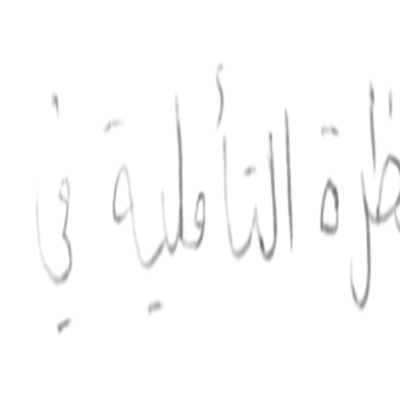 ظرة التأملية في